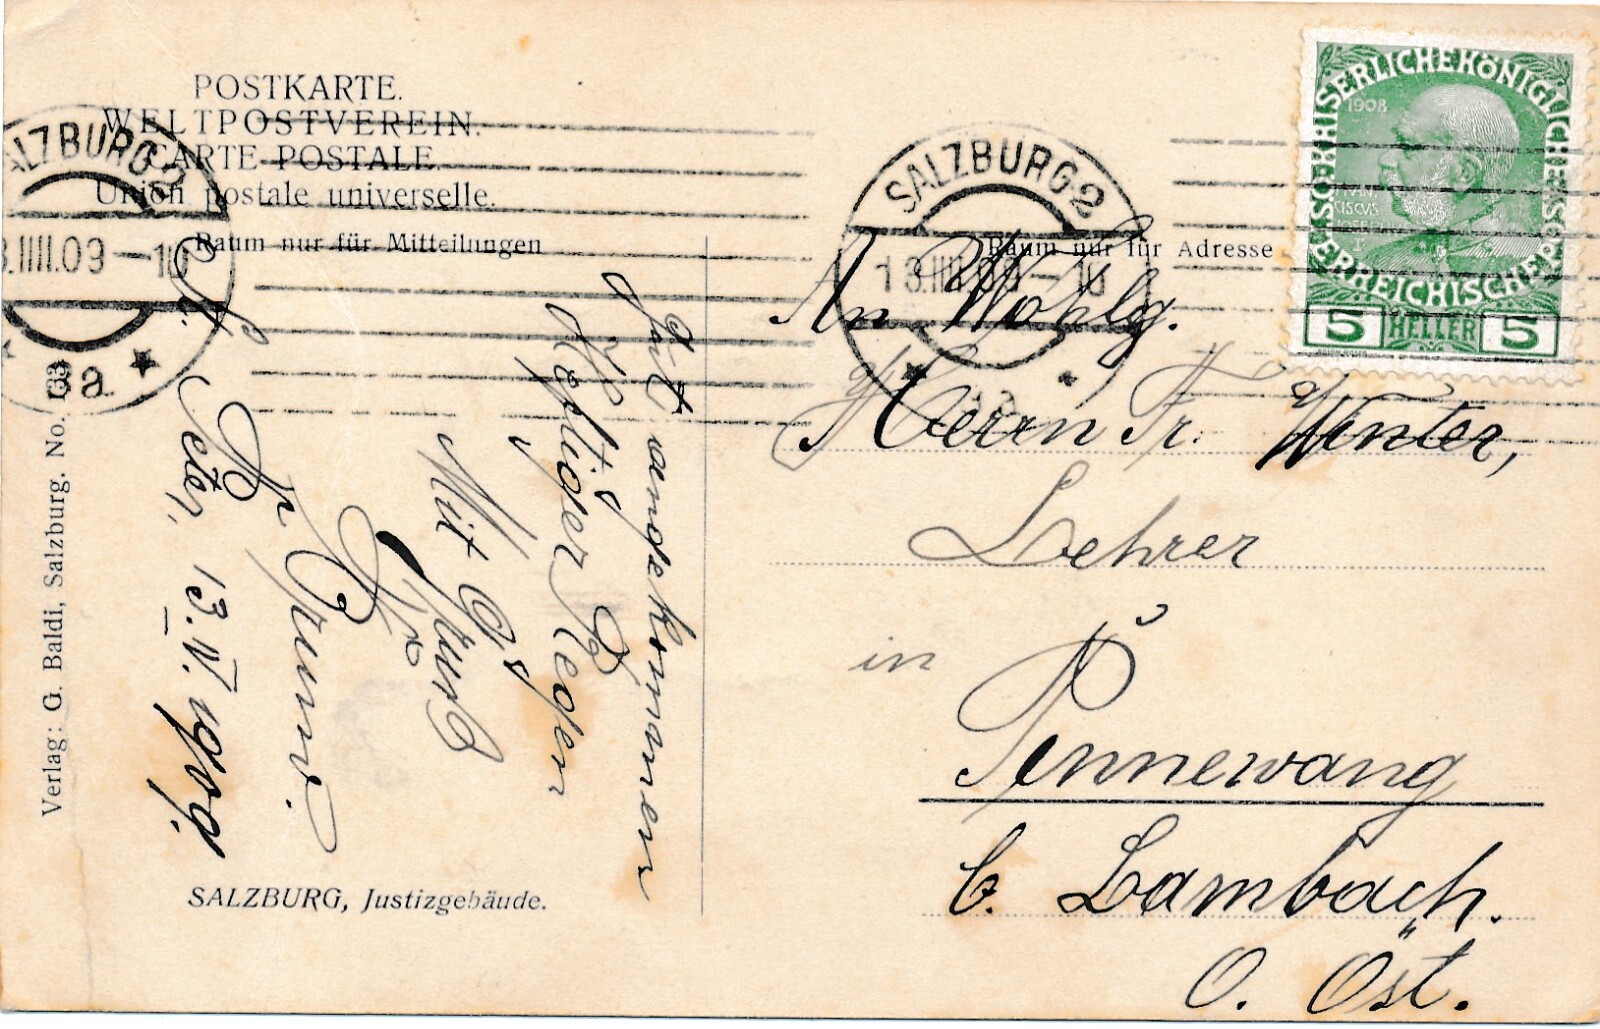 POSTKARTE.
WELTPOSTVEREIN.
CARTE POSTALE.
Union postale universelle.
Raum nur für Mitteilungen
Raum nur für Adresse
SALZBURG 2
13.IIII.09–10
8a
SALZBURG 2
13.IIII.09–10
KAISERLICHE KÖNIGLICHE ÖSTERREICHISCHE POST
1908
5 HELLER 5
An Wohlg.
Herrn Fr. Winter,
Lehrer
in
Pennewang
b. Lambach.
O. Öst.
Gut angekommen
Heftiger Regen
Mit Gruß
Fr
St. Peter, 13. IV. 1909.
SALZBURG, Justizgebäude.
Verlag: G. Baldi, Salzburg. No. 133